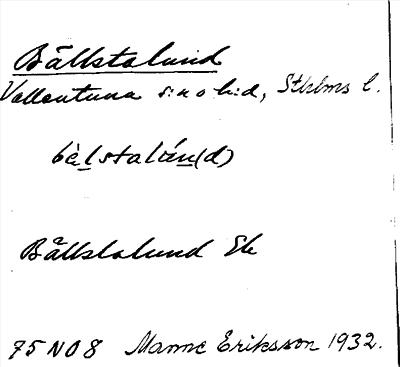 Bällstalund
Vallentuna s:n o h:d, Sthlms l.
bälstalún(d)
Bällstalund Ek
75 NO 8 Manne Eriksson 1932.